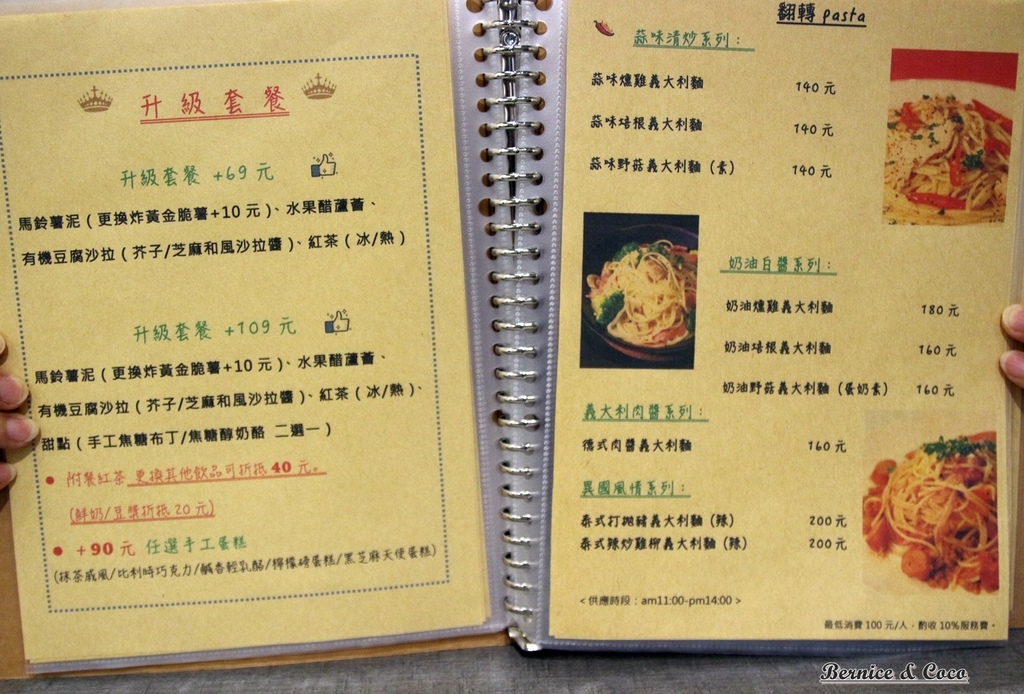 升級套餐
升級套餐 +69 元
馬鈴薯泥(更換炸黃金脆薯+10 元)、水果醋蘆薈、
有機豆腐沙拉(芥子/芝麻和風沙拉醬)、紅茶(冰/熱)
升級套餐 +109 元
馬鈴薯泥(更換炸黃金脆薯+10 元)、水果醋蘆薈、
有機豆腐沙拉(芥子/芝麻和風沙拉醬)、紅茶(冰/熱)、
甜點(手工焦糖布丁/焦糖醇奶酪 二選一)
● 附餐紅茶 更換其他飲品可折抵 40 元。
(鮮奶/豆漿折抵 20 元)
● +90 元 任選手工蛋糕
(抹茶戚風/比利時巧克力/鹹香輕乳酪/檸檬磅蛋糕/黑芝麻天使蛋糕)
翻轉 pasta
蒜味清炒系列:
蒜味燻雞義大利麵 140 元
蒜味培根義大利麵 140 元
蒜味野菇義大利麵(素) 140 元
奶油白醬系列:
奶油燻雞義大利麵 180 元
奶油培根義大利麵 160 元
奶油野菇義大利麵(蛋奶素) 160 元
義大利肉醬系列:
德式肉醬義大利麵 160 元
異國風情系列:
泰式打拋豬義大利麵(辣) 200 元
泰式辣炒雞柳義大利麵(辣) 200 元
<供應時段:am11:00-pm14:00>
最低消費 100 元/人,酌收 10%服務費。
Bernice & Coco